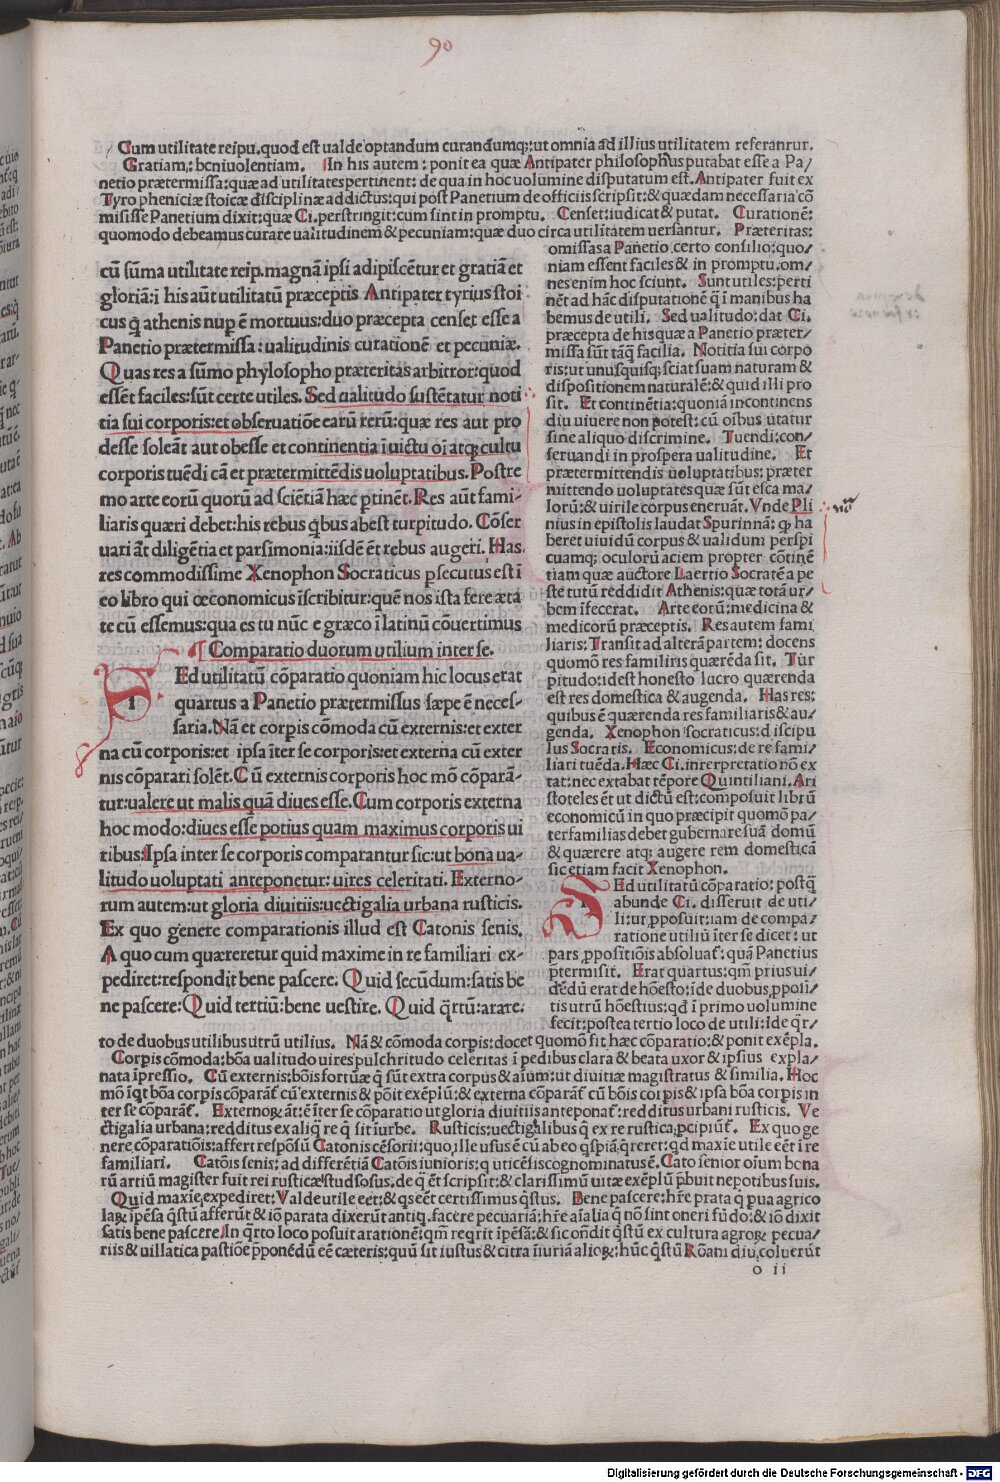 90
Cum utilitate reipu. quod est ualde optandum curandumq;: ut omnia ad illius utilitatem referantur.
Gratiam,: beniuolentiam. In his autem: ponit ea quæ Antipater philosophus putabat esse a Pa/
netio prætermissa: quæ ad utilitates pertinent: de qua in hoc uolumine disputatum est. Antipater fuit ex
Tyro pheniciæ stoicæ disciplinæ addictus: qui post Panetium de officiis scripsit: & quædam necessaria cõ
misisse Panetium dixit: quæ Ci. perstringit: cum sint in promptu. Censet: iudicat & putat. Curationẽ:
quomodo debeamus curare ualitudinem & pecuniam: quæ duo circa utilitatem uersantur. Præteritas:
cũ sũma utilitate reip. magnã ipsi adipiscẽtur et gratiã et
gloriã: ĩ his aũt utilitatũ præceptis Antipater tyrius stoi
cus q̃ athenis nup ẽ mortuus: duo præcepta censet esse a
Panetio prætermissa: ualitudinis curationẽ et pecuniæ.
Quas res a sũmo phylosopho præteritas arbitror: quod
essẽt faciles: sũt certe utiles. Sed ualitudo sustẽtatur noti
tia sui corporis: et obseruatiõe earũ rerũ: quæ res aut pro
desse soleãt aut obesse et continentia ĩ uictu oĩ atq; cultu
corporis tuẽdi cã et prætermittẽdis uoluptatibus. Postre
mo arte eorũ quorũ ad sciẽtiã hæc ptinẽt. Res aũt fami/
liaris quæri debet: his rebus q̃bus abest turpitudo. Cõser
uari ãt diligẽtia et parsimonia: iisdẽ ẽt rebus augeri. Has
res commodissime Xenophon Socraticus psecutus est ĩ
eo libro qui œconomicus ĩscribitur: quẽ nos ista fere æta
te cũ essemus: qua es tu nũc e græco ĩ latinũ cõuertimus
¶ Comparatio duorum utilium inter se.
SEd utilitatũ cõparatio quoniam hic locus erat
quartus a Panetio prætermissus sæpe ẽ neces/
saria. Nã et corpis cõmoda cũ externis: et exter
na cũ corporis: et ipsa ĩter se corporis: et externa cũ exter
nis cõparari solẽt. Cũ externis corporis hoc mõ cõparã/
tur: ualere ut malis quã diues esse. Cum corporis externa
hoc modo: diues esse potius quam maximus corporis ui
ribus: Ipsa inter se corporis comparantur sic: ut bona ua/
litudo uoluptati anteponetur: uires celeritati. Externo/
rum autem: ut gloria diuitiis: uectigalia urbana rusticis.
Ex quo genere comparationis illud est Catonis senis.
A quo cum quæreretur quid maxime in re familiari ex/
pediret: respondit bene pascere. Quid secũdum: satis be
ne pascere: Quid tertiũ: bene uestire. Quid q̃rtũ: arare:
omissas a Panetio certo consilio: quo/
niam essent faciles & in promptu. om/
nes enim hoc sciunt. Sunt utiles: perti
nẽt ad hãc disputationẽ q̃ ĩ manibus ha
bemus de utili. Sed ualitudo: dat Ci.
præcepta de his quæ a Panetio præter/
missa sũt tãq̃ facilia. Notitia sui corpo
ris: ut unusquisq; sciat suam naturam &
dispositionem naturalẽ: & quid illi pro
sit. Et continẽtia: quoniã incontinens
diu uiuere non potest: cũ oĩbus utatur
sine aliquo discrimine. Tuendi: con/
seruandi in prospera ualitudine. Et
prætermittendis uoluptatibus: præter
mittendo uoluptates quæ sũt esca ma/
lorũ: & uirile corpus eneruãt. Vnde Pli
nius in epistolis laudat Spurinnã: q; ha
beret uiuidũ corpus & ualidum perspi
cuamq; oculorũ aciem propter cõtinẽ
tiam quæ auctore Laertio Socratẽ a pe
ste tutũ reddidit Athenis: quæ totã ur/
bem ĩfecerat. Arte eorũ: medicina &
medicorũ præceptis. Res autem fami
liaris: Transit ad alterã partem: docens
quomõ res familiris quærẽda sit. Tur
pitudo: idest honesto lucro quærenda
est res domestica & augenda. Has res:
quibus ẽ quærenda res familiaris & au/
genda. Xenophon socraticus: discipu
lus Socratis. Economicus: de re fami/
liari tuẽda. Hæc Ci. interpretatio nõ ex
tat: nec extabat tẽpore Quintiliani. Ari
stoteles ẽt ut dictũ est: composuit librũ
economicũ in quo præcipit quomõ pa/
terfamilias debet gubernare suã domũ
& quærere atq; augere rem domesticã
sic etiam facit Xenophon.
SEd utilitatũ cõparatio: postq̃
abunde Ci. disseruit de uti/
li: ut pposuit: iam de compa/
ratione utiliũ ĩter se dicet: ut
pars ppositiõis absoluat: quã Panetius
ptermisit. Erat quartus: qm̃ prius ui/
dẽdũ erat de hõesto: ĩde duobus ppoĩ/
tis utrũ hõestius: qd ĩ primo uolumine
fecit: postea tertio loco de utili: ĩde q̃r/
to de duobus utilibus utrũ utilius. Nã & cõmoda corpis: docet quomõ sit hæc cõparatio: & ponit exẽpla.
Corpis cõmoda: bõa ualitudo uires pulchritudo celeritas ĩ pedibus clara & beata uxor & ipsius expla/
nata ĩpressio. Cũ externis: bõis fortũæ q̃ sũt extra corpus & aĩum: ut diuitiæ magistratus & similia. Hoc
mõ ĩqt bõa corpis cõparãt cũ externis & põit exẽplũ: & externa cõparãt cũ bõis corpis & ipsa bõa corpis in
ter se cõparãt. Externoꝝ ãt: ẽ ĩter se cõparatio ut gloria diuitiis anteponat: redditus urbani rusticis. Ve
ctigalia urbana: redditus ex aliq̃ re q̃ sit ĩ urbe. Rusticis: uectigalibus q̃ ex re rustica pcipiũt. Ex quo ge
nere cõparatiõis: affert respõsũ Catonis cẽsorii: quo ille usus ẽ cũ ab eo q̃spiã q̃reret: qd maxĩe utile eẽt ĩ re
familiari. Catõis senis: ad differẽtiã Catõis iunioris: q uticẽsis cognominatus ẽ. Cato senior oĩum bona
rũ artiũ magister fuit rei rusticæ studiosus, de q̃ ẽt scripsit: & clarissimũ uitæ exẽplũ pbuit nepotibus suis.
Quid maxĩe expediret: Valde utile eẽt: & q eẽt certissimus q̃stus. Bene pascere: hre prata q̃ pua agrico
laꝝ ĩpẽsa q̃stũ afferũt & iõ parata dixerũt antiq. facere pecuariã: hre aĩalia q̃ nõ sint oneri fũdo: & iõ dixit
satis bene pascere. In q̃rto loco posuit arationẽ: qm̃ reqrit ĩpẽsã: & sic oñdit q̃stũ ex cultura agroꝝ pecua/
riis & uillatica pastiõe pponẽdũ eẽ cæteris: quũ sit iustus & citra ĩiuriã alioꝝ: hũc q̃stũ Rõani diu coluerũt
o ii
Digitalisierung gefördert durch die Deutsche Forschungsgemeinschaft - DFG